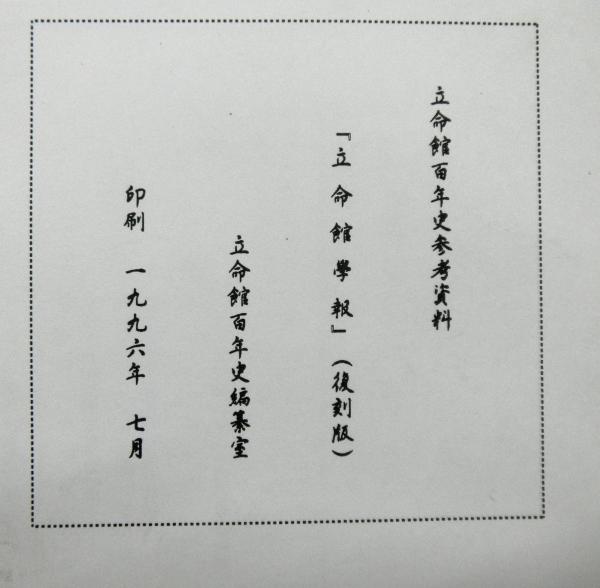 立命館百年史参考資料
『立命館學報』（復刻版）
立命館百年史編纂室
印刷　一九九六年　七月